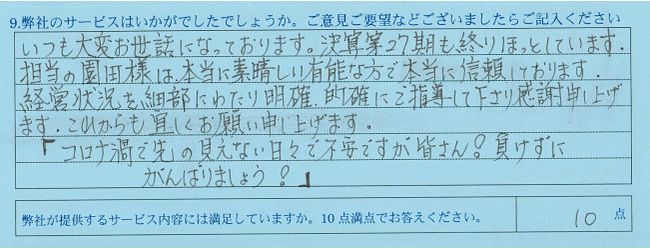 9.弊社のサービスはいかがでしたでしょうか。ご意見ご要望などございましたらご記入ください
いつも大変お世話になっております。決算第27期も終りほっとしています.
担当の園田様は、本当に素晴しい有能な方で本当に信頼しております.
経営状況を細部にわたり明確、的確にご指導して下さり感謝申し上げ
ます.これからも宜しくお願い申し上げます.
「コロナ渦で先の見えない日々で不安ですが皆さん!負けずに
がんばりましょう!」
弊社が提供するサービス内容には満足していますか。10点満点でお答えください。 10 点